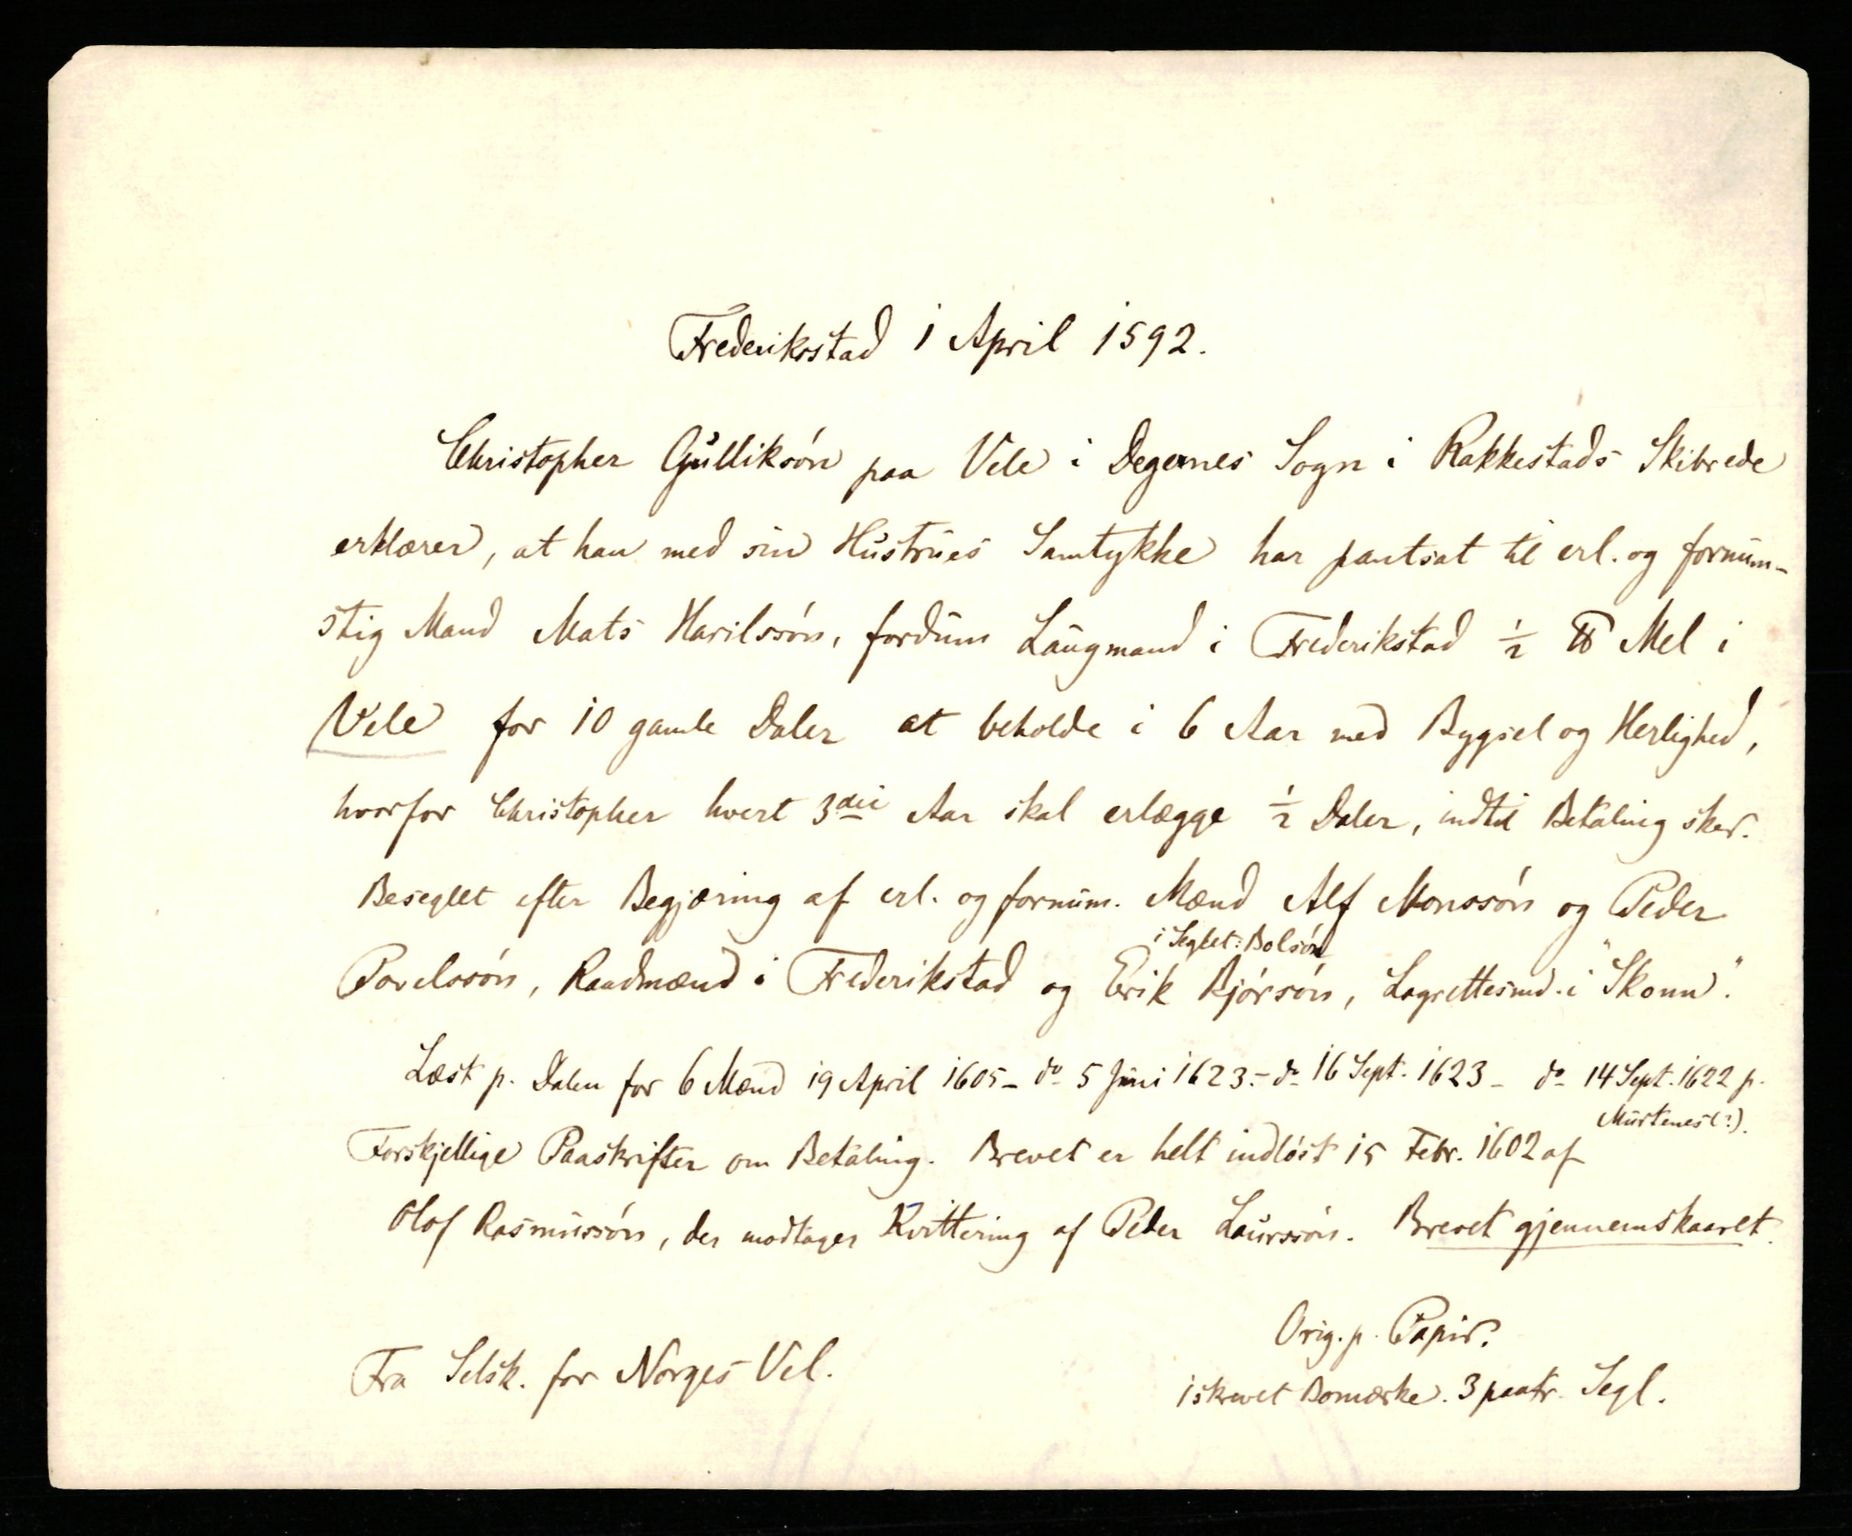 Frederikstad 1 April 1592.
Christopher Gulliksön paa Vele i Degernes Sogn i Rakkestads Skibrede
erklærer, at han med sin Hustrues Samtykke har pantsat til erl. og fornum-
stig Mand Mats Harilssön, fordum Laugmand i Frederikstad ½ ℔ Mel i
Vele for 10 gamle Daler at beholde i 6 Aar med Bygsel og Herlighed,
hvorfor Christopher hvert 3die Aar skal erlægge ½ Daler, indtil Betaling sker.
Beseglet efter Begjæring af erl. og fornum. Mænd Alf Monssön og Peder
i Seglet: Bolsön
Povelssön, Raadmænd i Frederikstad og Erik Björsön, Lagrettesmd. i "Skonn".
Læst p. Dalen for 6 Mænd 19 April 1605 - do 5 Juni 1623. - do 16 Sept. 1623 - do 14 Sept. 1622 p.
Murtenes (?).
Forskjellige Paaskrifter om Betaling. Brevet er helt indlöst 15 Febr. 1602 af
Olof Rasmussön, der modtager Kvittering af Peder Laurssön. Brevet gjennemskaaret.
Orig. p. Papir.
Fra Selsk. for Norges Vel.
1 skrevet Bomærke. 3 paatr. Segl.